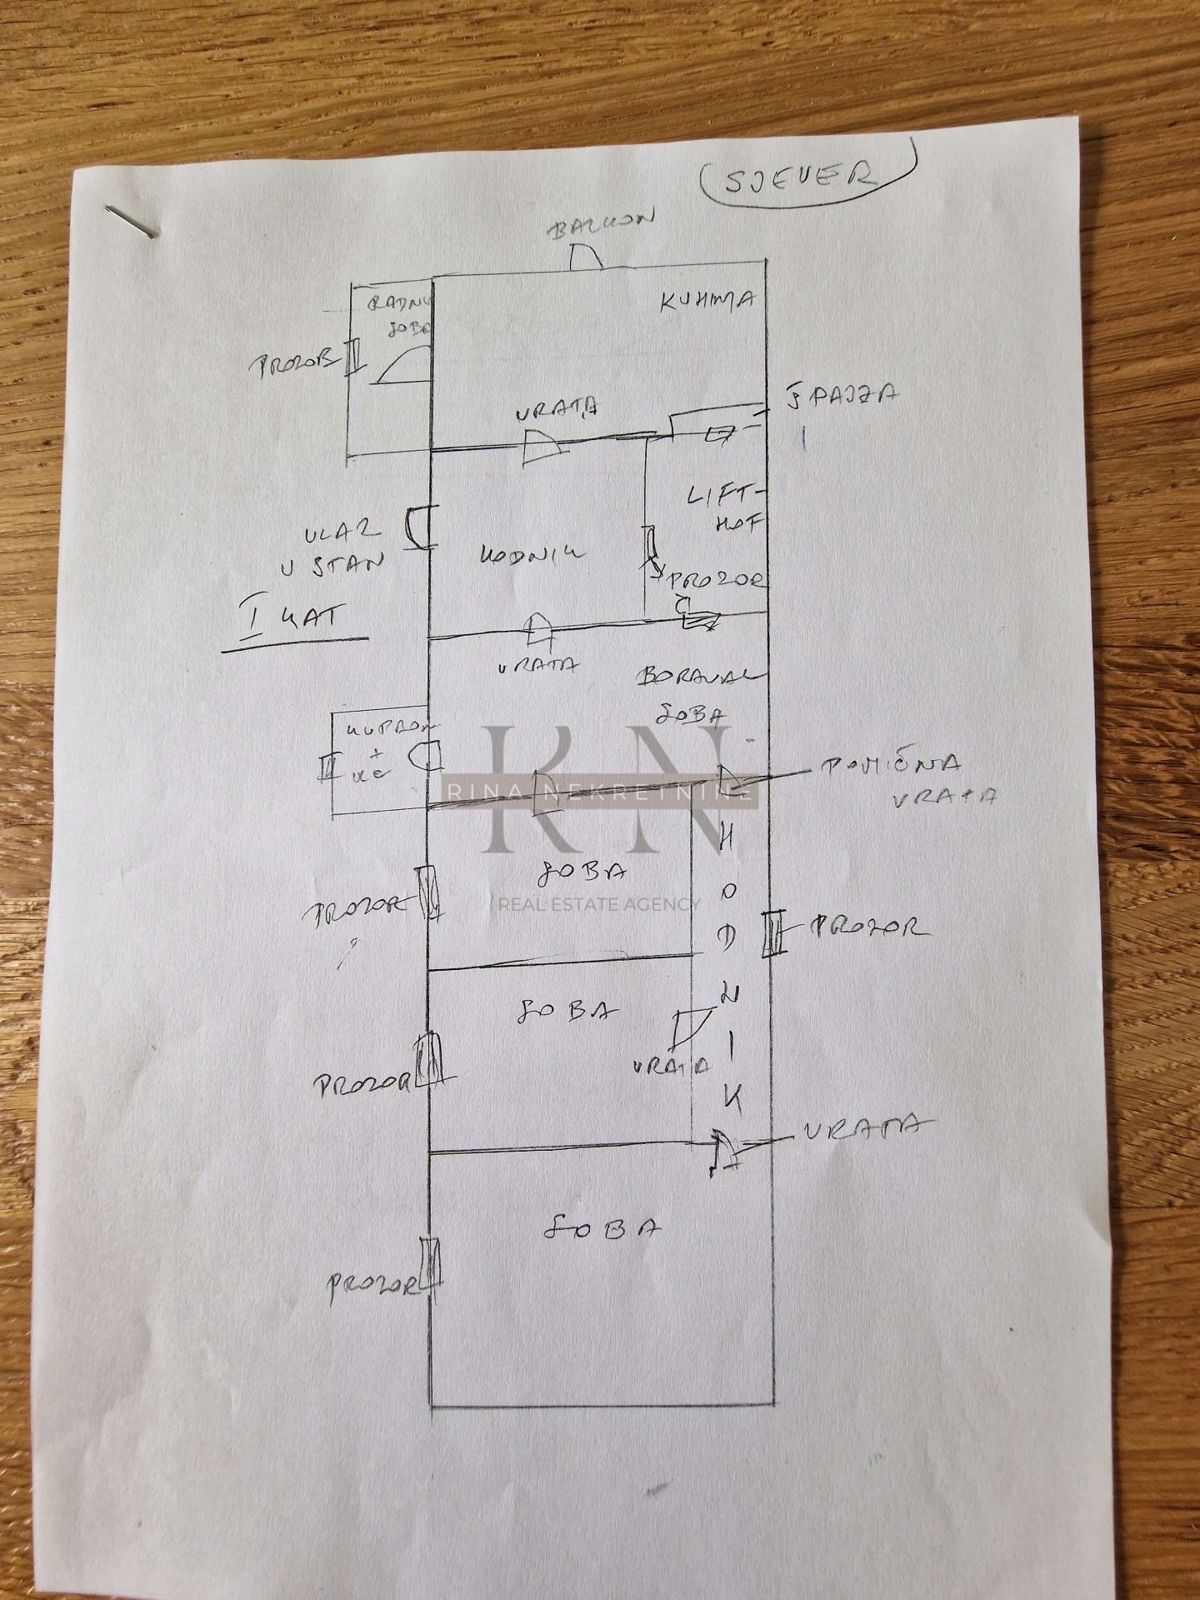 SJEVER
BALKON
RADNA
SOBA
KUHINJA
PROZOR
VRATA
ŠPAJZA
LIFT-
HOF
ULAZ
U STAN
HODNIK
PROZOR
I KAT
VRATA
BORAVAK
SOBA
KUPAON
+
WC
POMIČNA
VRATA
RN
RINA NEKRETNINE
REAL ESTATE AGENCY
SOBA
HODNIK
PROZOR
PROZOR
SOBA
VRATA
PROZOR
VRATA
SOBA
PROZOR